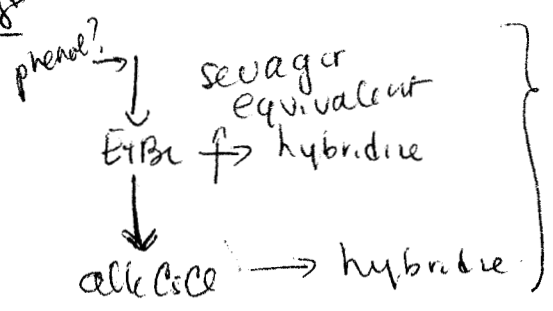 phenol?
sevager
equivalent
EtBr → hybridize
alk CsCl → hybridize